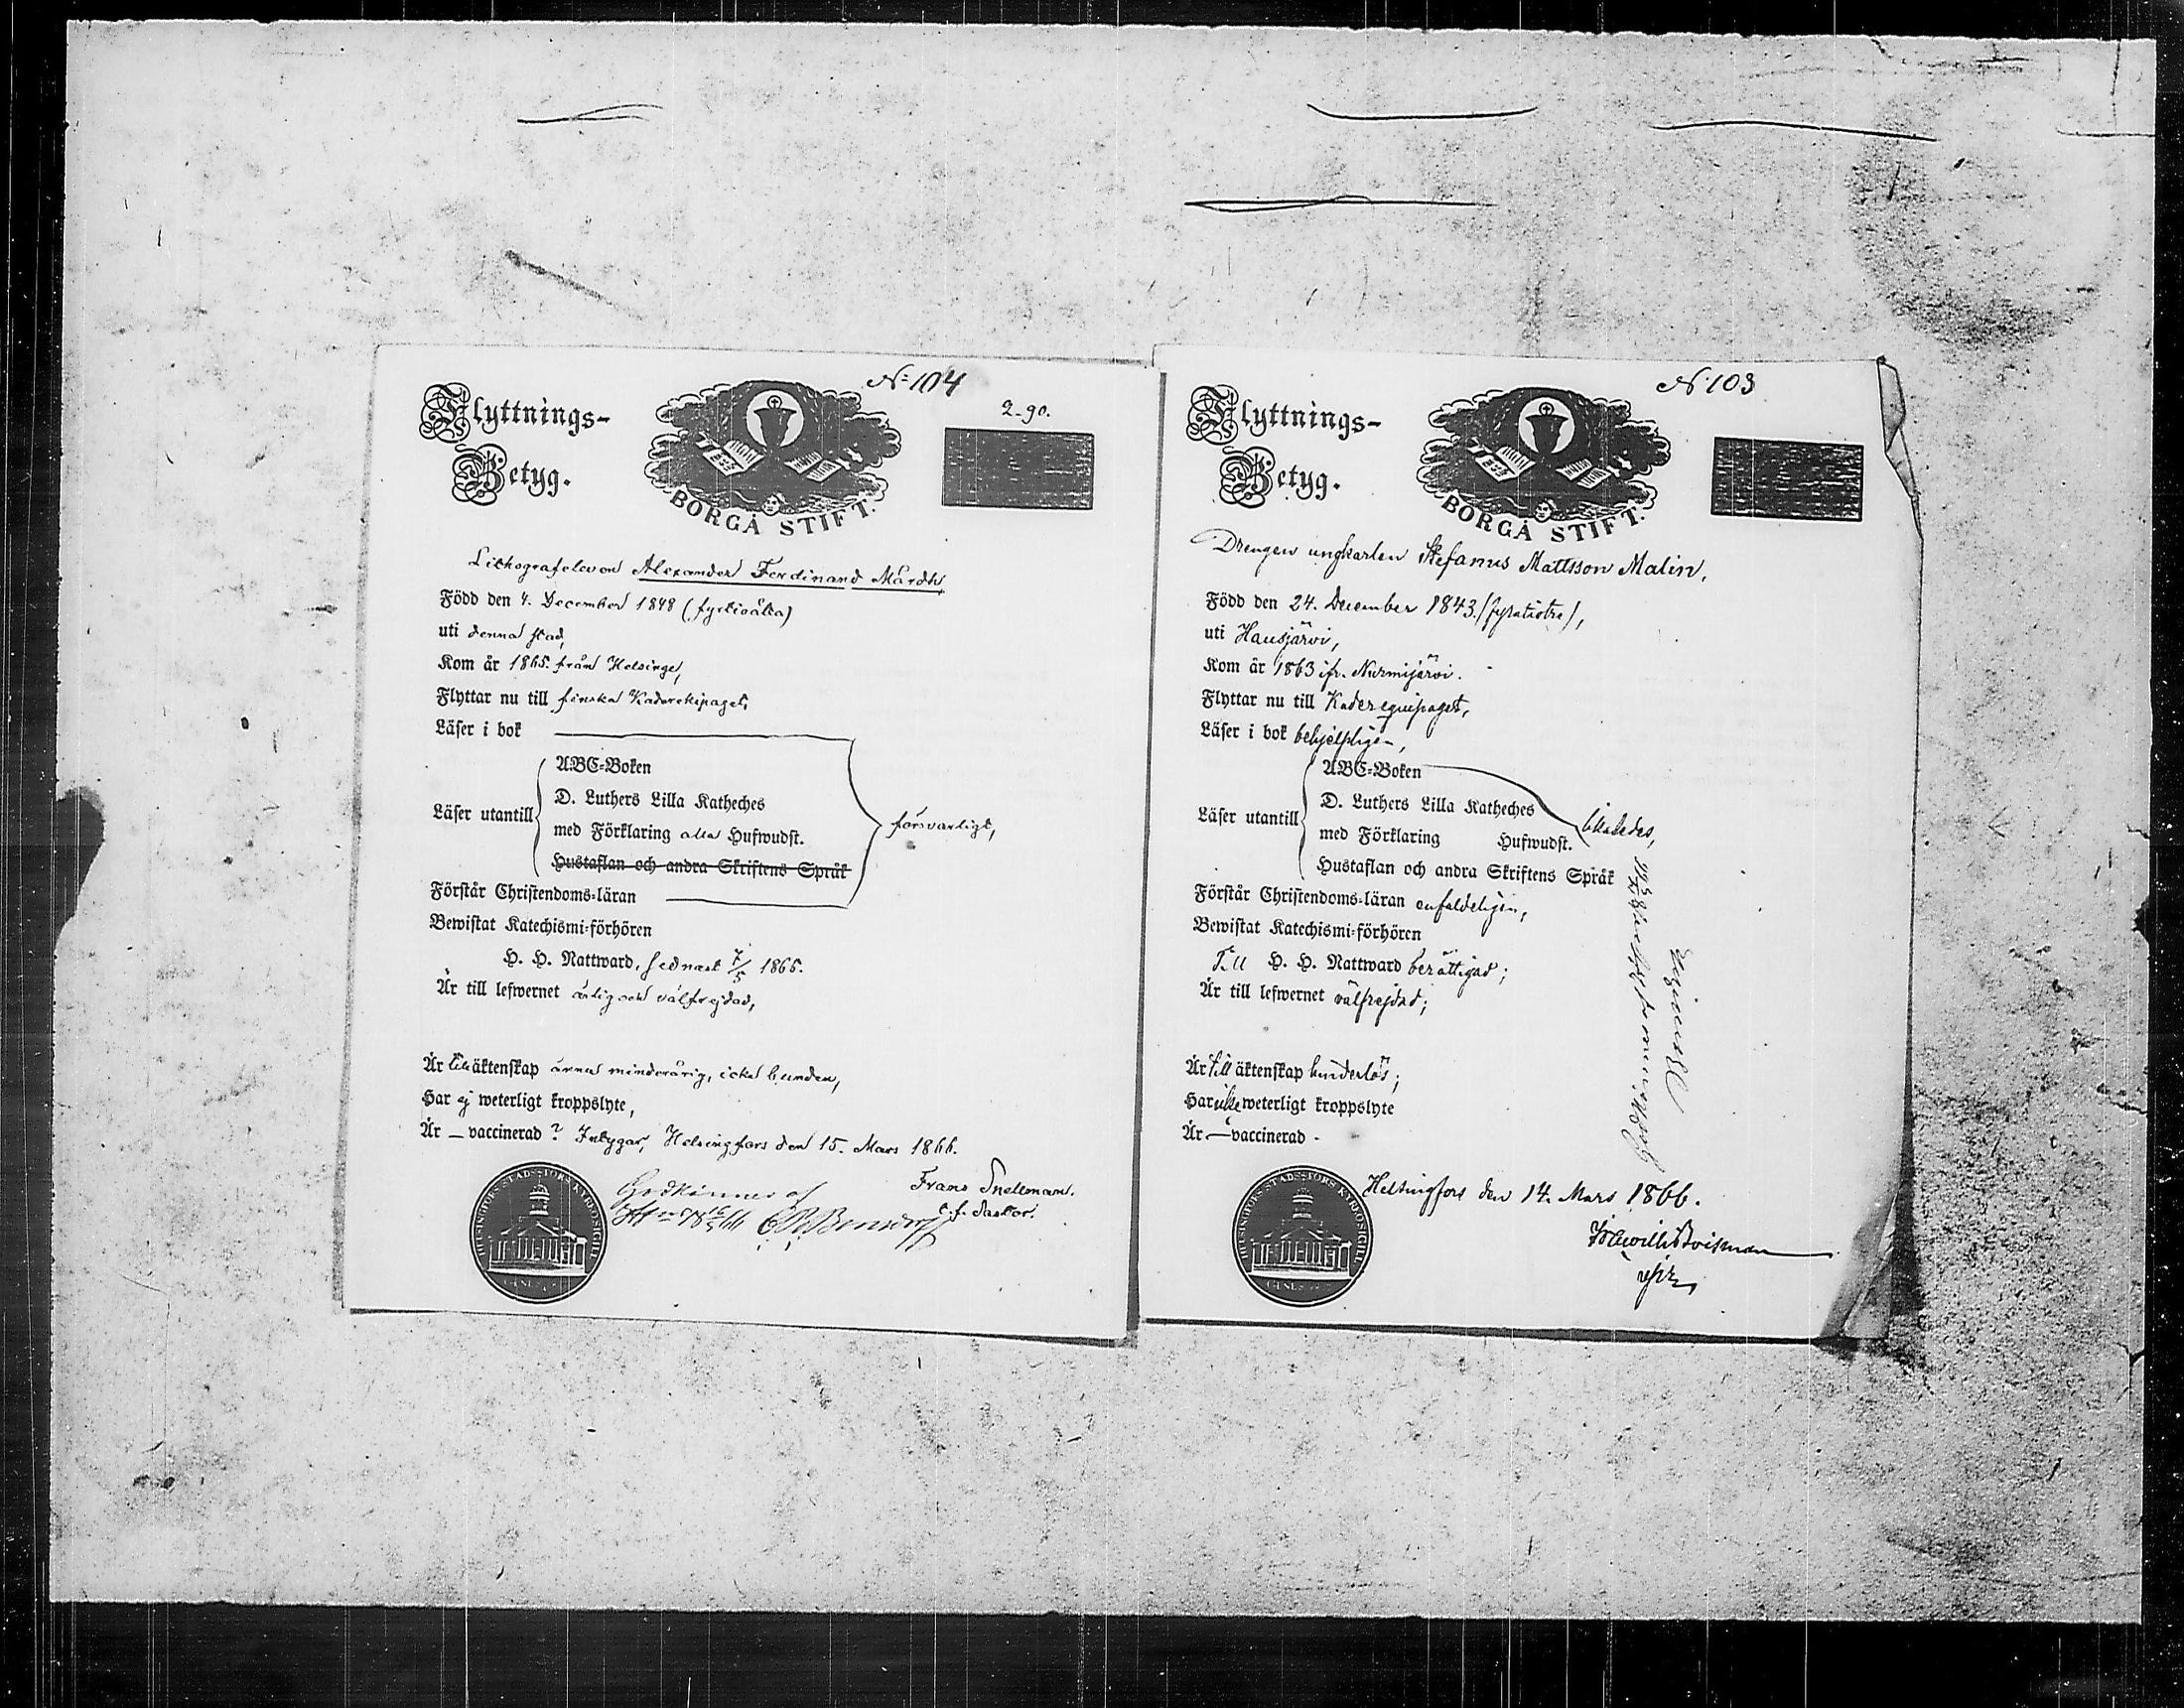 N:104
2-90.
Flyttnings-
Betyg.
BORGÅ STIFT.
Lithografeleven Alexander Ferdinand Mårdh
Född den 4. December 1848 (fyrtioåtta)
uti denna stad,
Kom år 1865. från Helsinge,
Flyttar nu till finska Kaderekipaget,
Läser i bok
Läser utantill
ABC-Boken
D. Luthers Lilla Katheches
med Förklaring alla Hufwudst.
Hustaflan och andra Skriftens Språk
försvarligt,
Förstår Christendoms-läran
Bewistat Katechismi-förhören
H. H. Nattward, sednast 7/5 1865.
Är till lefwernet ärlig och välfrejdad,
Är till äktenskap ännu minderårig, icke bunden,
Har ej weterligt kroppslyte,
Är — vaccinerad? Intygar, Helsingfors den 15. Mars 1866.
Frans Snellman.
t. f. Pastor.
Godkännes af
HELSINGFORS STADSSFÖRS KYRKOSIGILL
N:103
Flyttnings-
Betyg.
BORGÅ STIFT.
Drengen ungkarlen Stefanus Mattsson Malin,
Född den 24. December 1843. (fyratiotre),
uti Hausjärvi,
Kom år 1863 ifr. Nurmijärvi.
Flyttar nu till Kaderequipaget,
Läser i bok behjelpligen,
Läser utantill
ABC-Boken
D. Luthers Lilla Katheches
med Förklaring Hufwudst.
Hustaflan och andra Skriftens Språk
likaledes,
Förstår Christendoms-läran enfaldeligen,
Bewistat Katechismi-förhören
Till H. H. Nattward berättigad;
Är till lefwernet välfrejdad;
Är till äktenskap hinderlös;
Har icke weterligt kroppslyte
Är — vaccinerad -
Godkännes
Helsingfors den 14. Mars 1866.
HELSINGFORS STADSSFÖRS KYRKOSIGILL